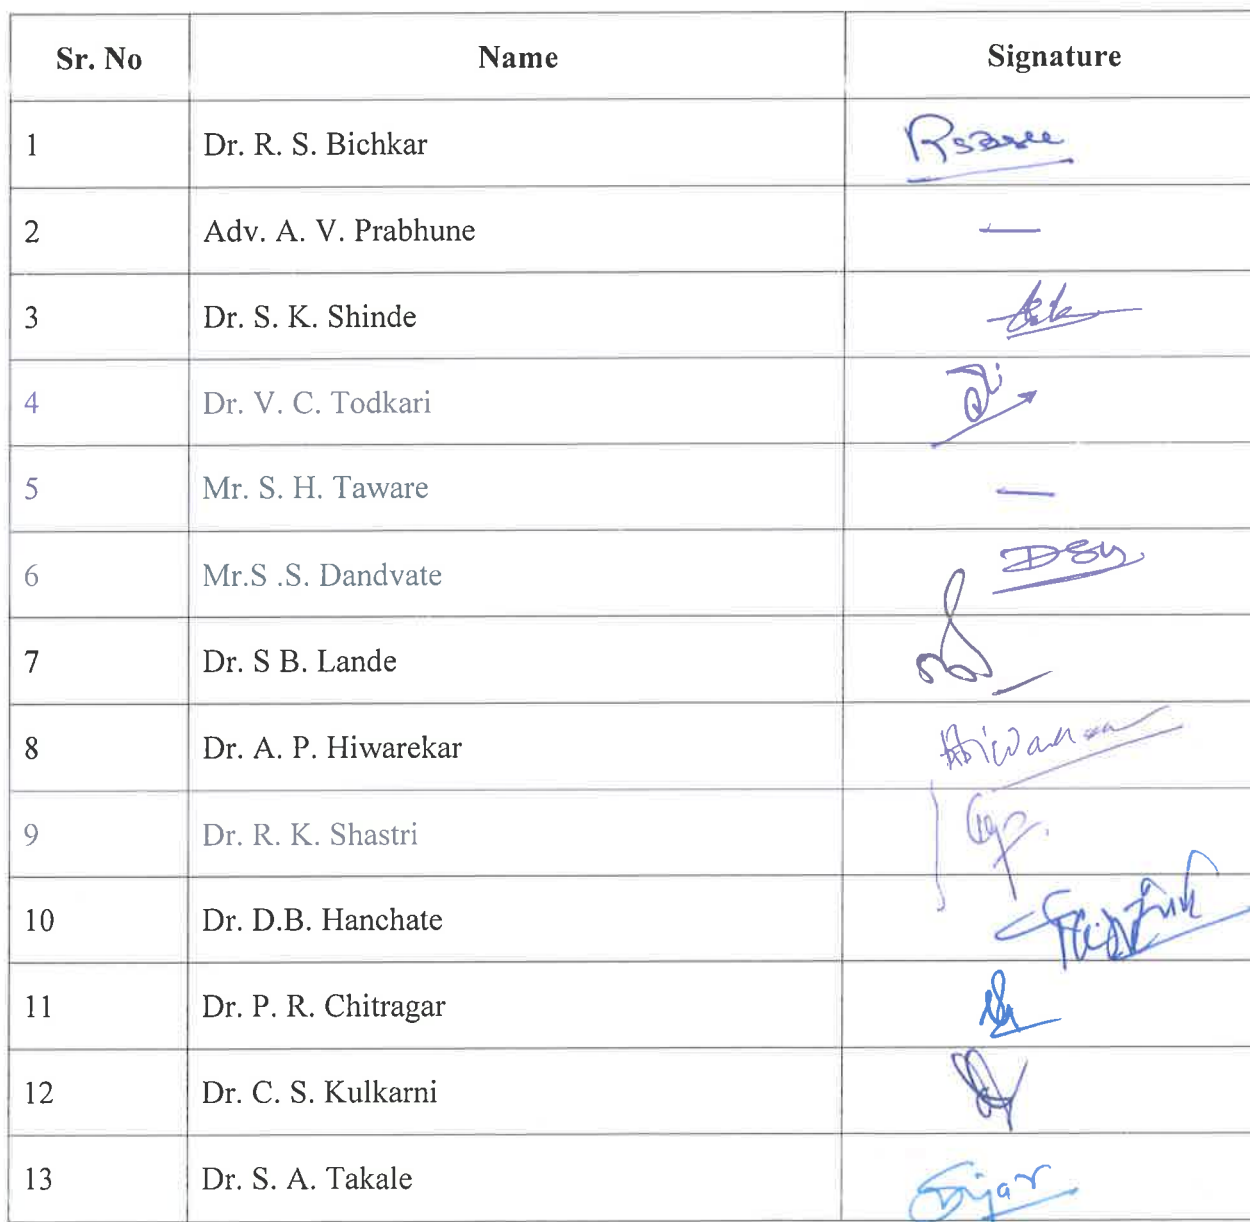 Sr. No Name Signature
1 Dr. R. S. Bichkar
2 Adv. A. V. Prabhune —
3 Dr. S. K. Shinde
4 Dr. V. C. Todkari
5 Mr. S. H. Taware —
6 Mr.S .S. Dandvate
7 Dr. S B. Lande
8 Dr. A. P. Hiwarekar
9 Dr. R. K. Shastri
10 Dr. D.B. Hanchate
11 Dr. P. R. Chitragar
12 Dr. C. S. Kulkarni
13 Dr. S. A. Takale